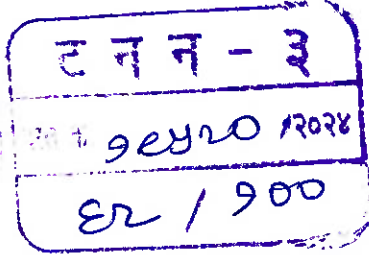 ट न न - ३
१९५२० /२०२४
६२ / १००